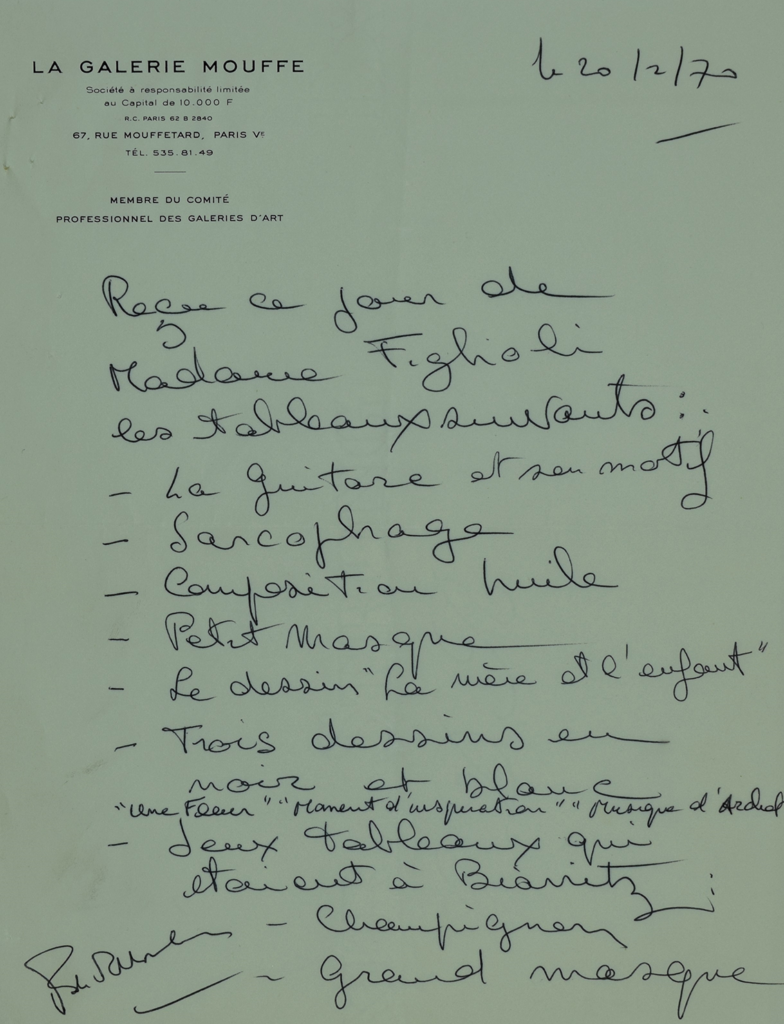 LA GALERIE MOUFFE
Société à responsabilité limitée
au Capital de 10.000 F
R.C. PARIS 62 B 2840
67, RUE MOUFFETARD, PARIS Vᵉ
TÉL. 535.81.49
MEMBRE DU COMITÉ
PROFESSIONNEL DES GALERIES D'ART
le 20/2/70
Reçu ce jour de
Madame Figlioli
les tableaux suivants :
- La guitare et son motif
- Sarcophage
- Composition huile
- Petit masque
- Le dessin "La mère et l'enfant"
- Trois dessins en
noir et blanc
"Une Fleur" "Moment d'inspiration" "Musique d'
- deux tableaux qui
étaient à Biarritz :
- Champignon
- Grand masque